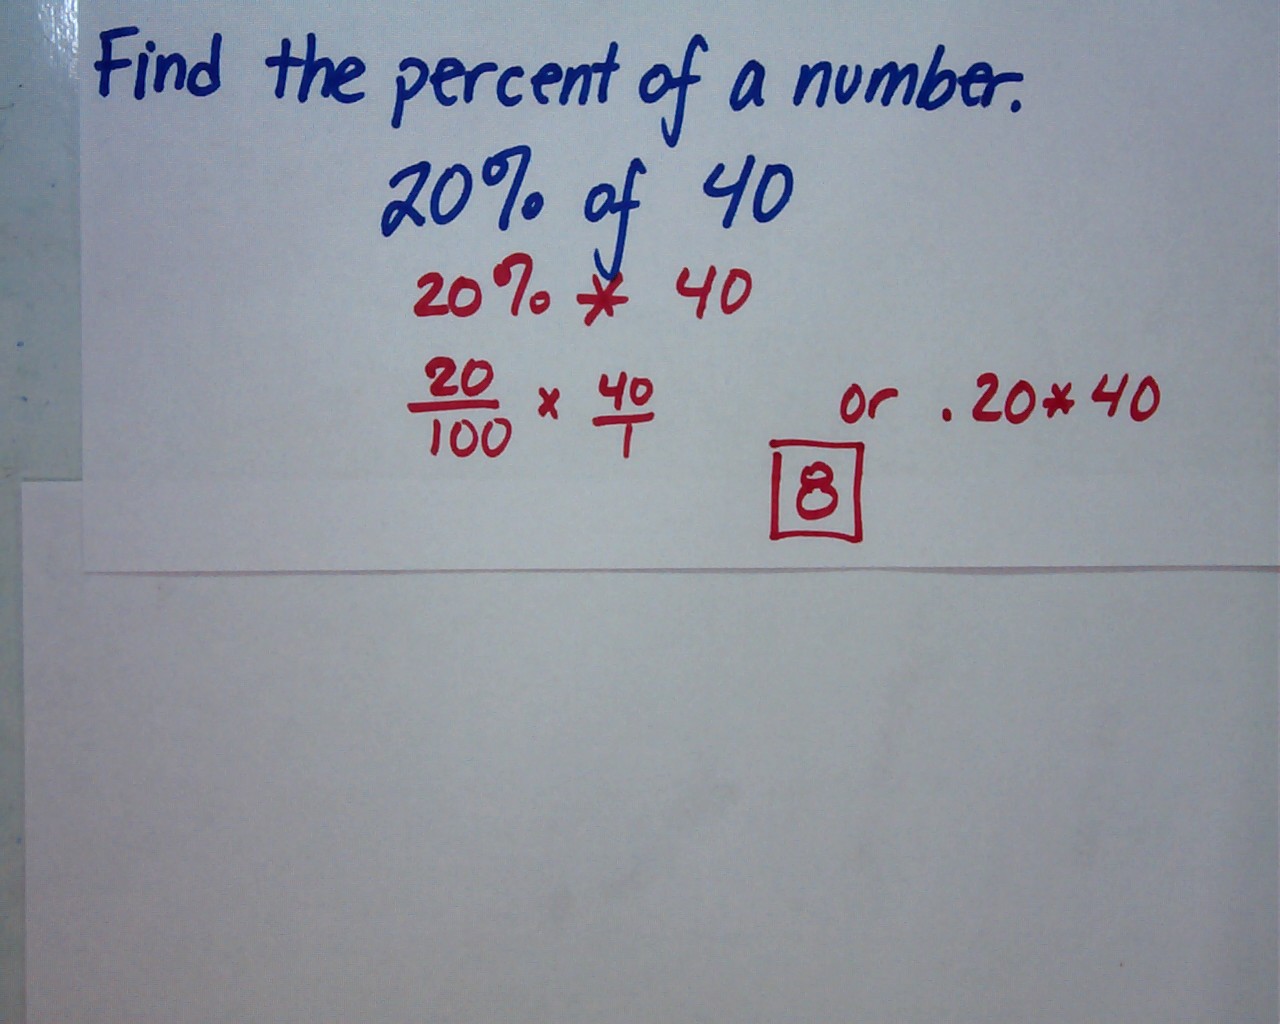 Find the percent of a number.
20% of 40
20% * 40
20/100 x 40/1 or .20*40
8